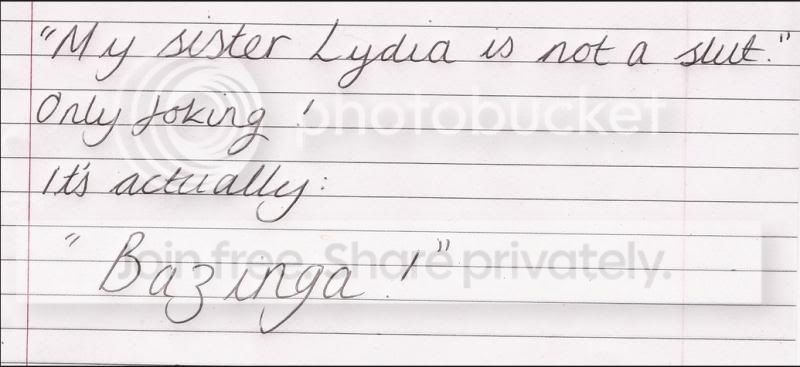 "My sister Lydia is not a slut."
Only joking!
It's actually:
"Bazinga!"
photobucket
Join free. Share privately.